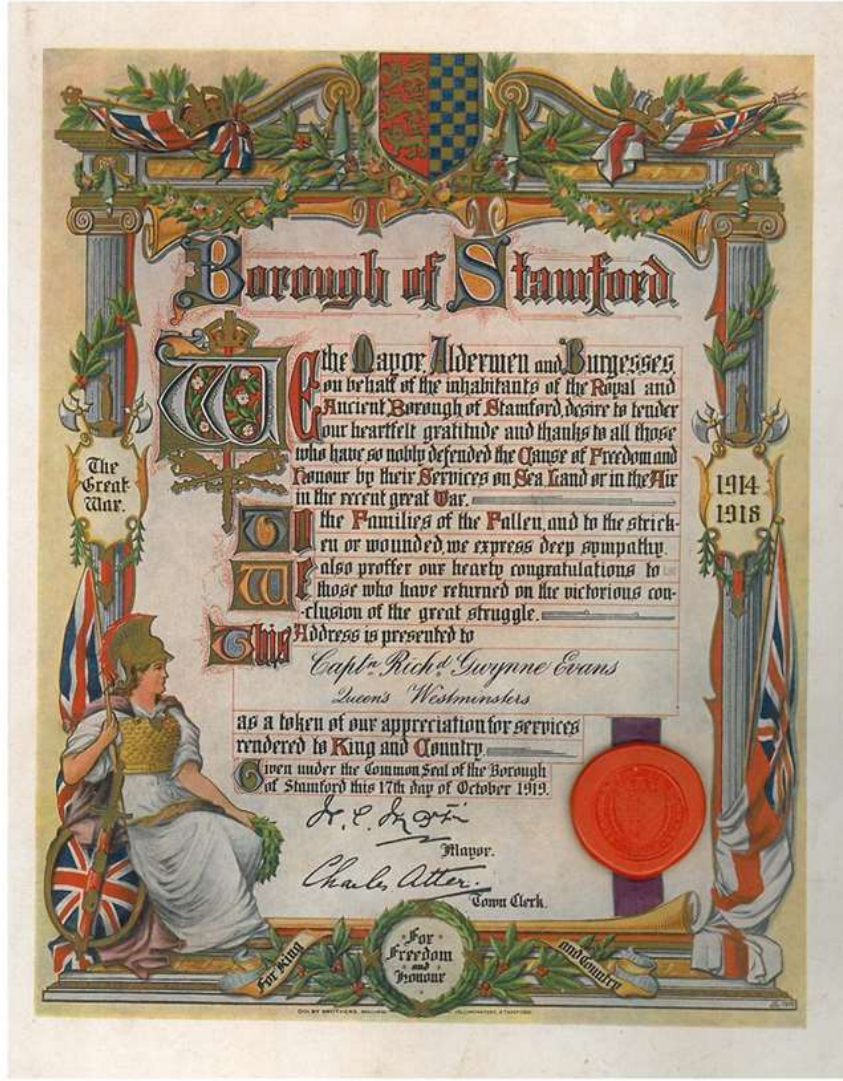 Borough of Stamford
WE the Mayor, Aldermen and Burgesses,
on behalf of the inhabitants of the Royal and
Ancient Borough of Stamford, desire to tender
our heartfelt gratitude and thanks to all those
who have so nobly defended the Cause of Freedom and
Honour by their Services on Sea Land or in the Air
in the recent great War.
The
Great
War.
1914
1918
TO the Families of the Fallen, and to the strick-
en or wounded, we express deep sympathy.
WE also proffer our hearty congratulations to
those who have returned on the victorious con-
-clusion of the great struggle.
This Address is presented to
Captn Richd Gwynne Evans
Queen's Westminsters
as a token of our appreciation for services
rendered to King and Country.
Given under the Common Seal of the Borough
of Stamford this 17th day of October 1919.
Mayor.
Charles Atter.
Town Clerk.
For King
For
Freedom
and
Honour
and Country
DOLBY BROTHERS, STAMFORD